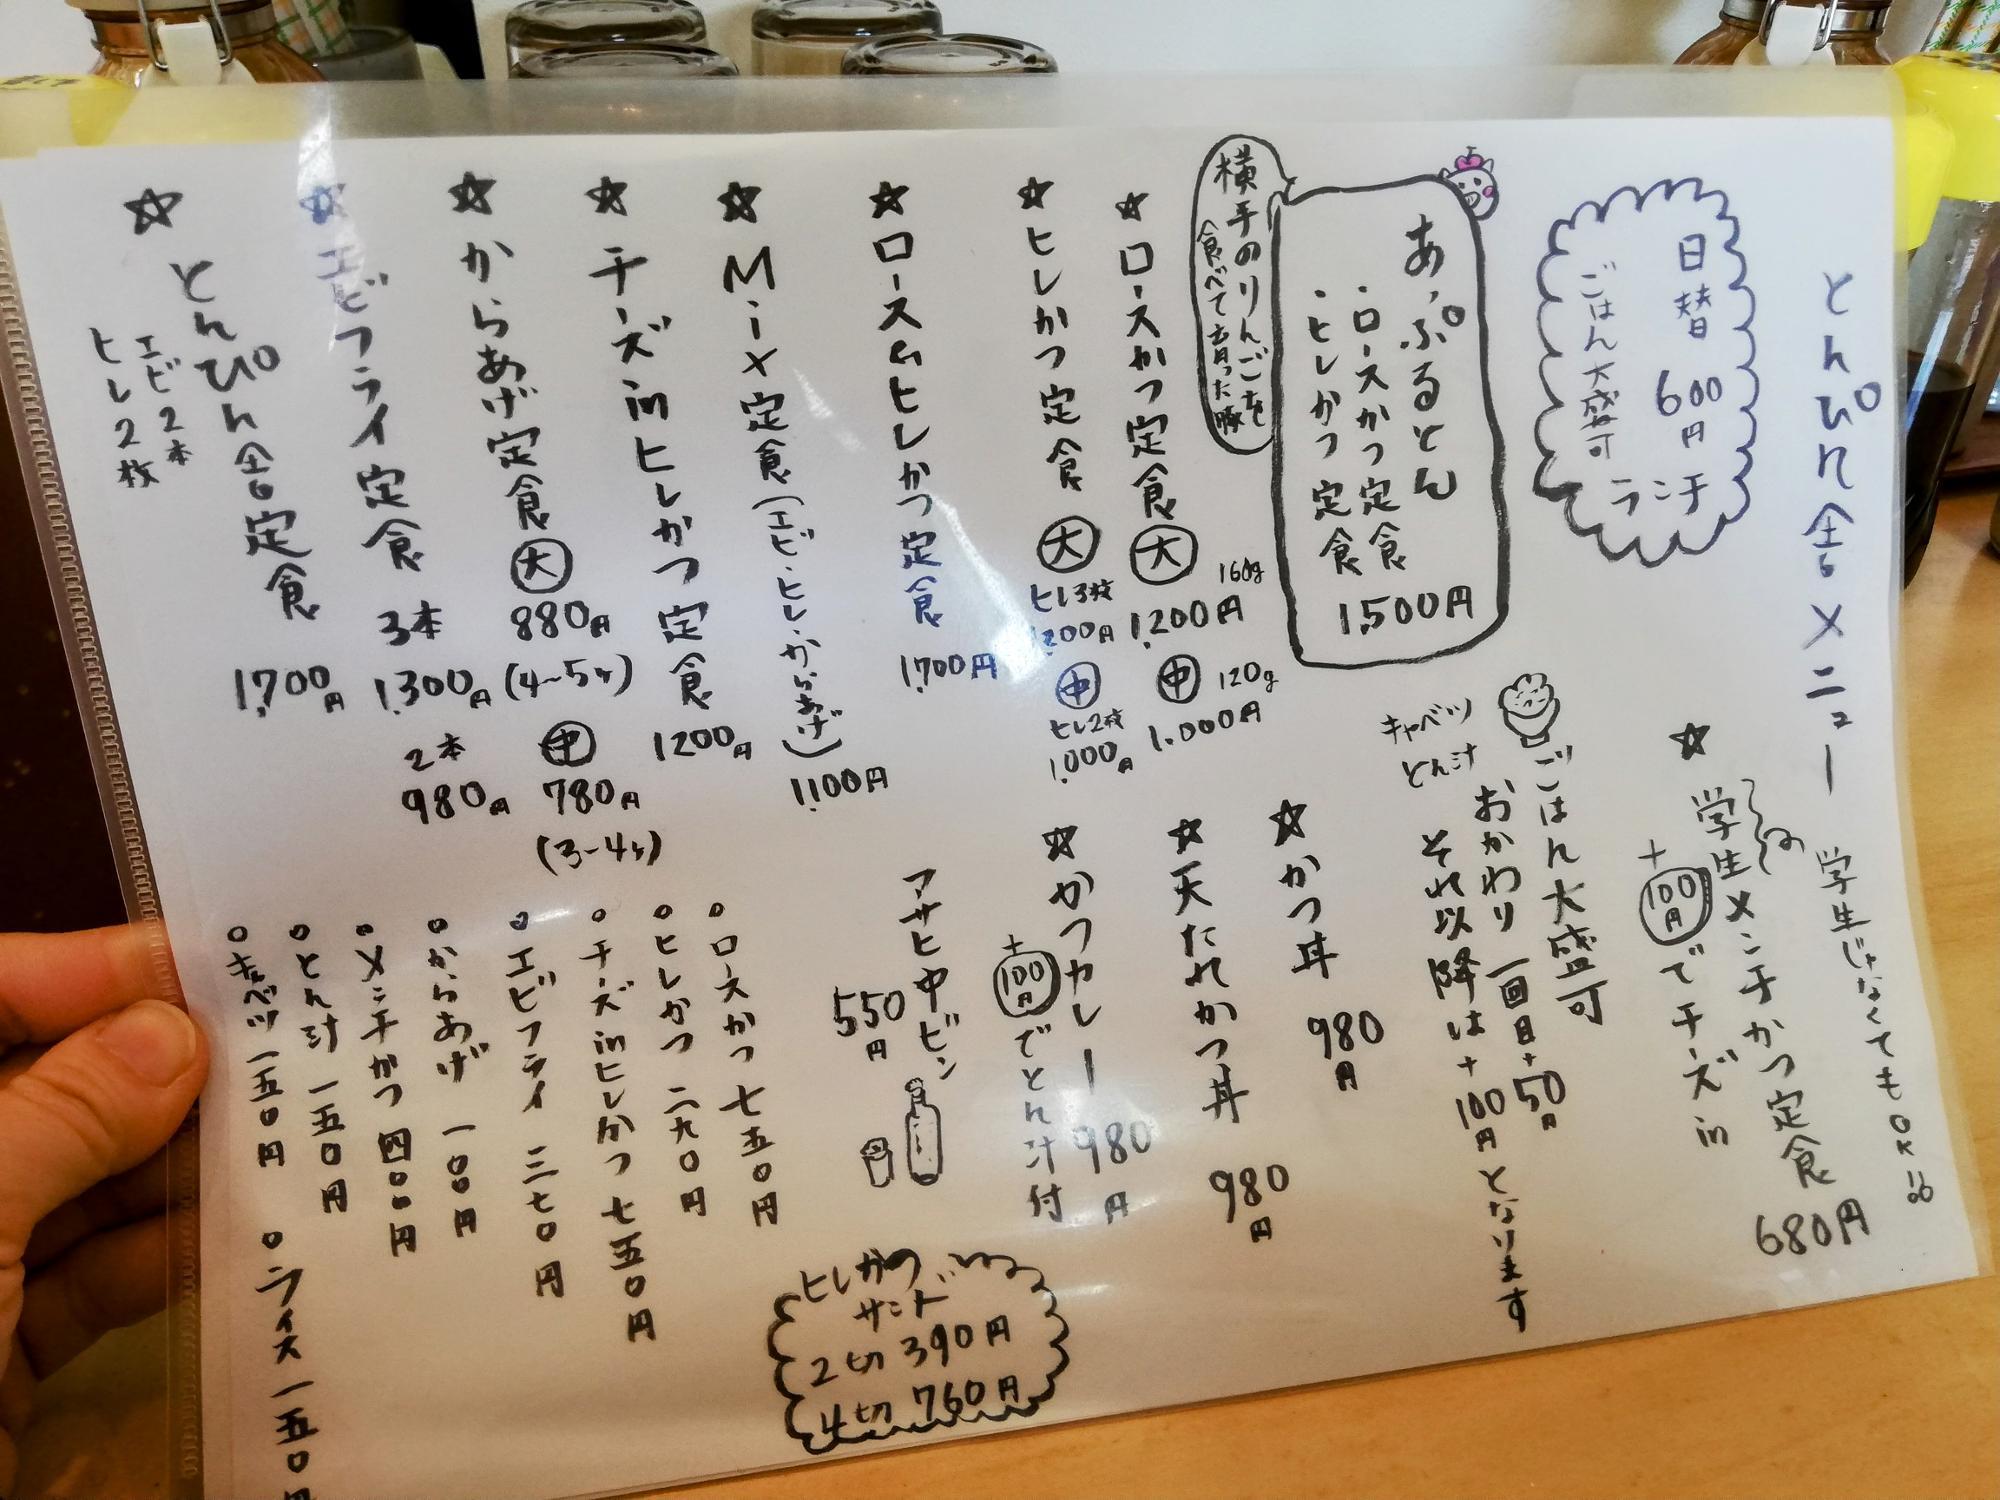 とんぴん舎メニュー
日替
600円
ランチ
ごはん大盛可
あっぷるとん
・ロースかつ定食
・ヒレかつ定食
1,500円
横手のりんごを
食べて育った豚
☆ロースかつ定食 大 160g
1,200円
中 120g
1,000円
☆ヒレかつ定食 大
ヒレ3枚
1,200円
中
ヒレ2枚
1,000円
☆ロース&ヒレかつ定食 1,700円
☆Mix定食(エビ・ヒレ・からあげ) 1,100円
☆チーズinヒレかつ定食 1200円
☆からあげ定食 大 880円
(4~5ヶ)
中
780円
(3~4ヶ)
☆エビフライ定食 3本
1,300円
2本
980円
☆とんぴん舎定食 1,700円
エビ2本
ヒレ2枚
学生じゃなくてもOK!!
☆学生メンチかつ定食 680円
+100円でチーズin
ごはん大盛可
おかわり一回目+50円
それ以降は+100円となります
キャベツ
とん汁
☆かつ丼 980円
☆天たれかつ丼 980円
☆かつカレー 980円
+100円でとん汁付
アサヒ中ビン
550円
ヒレかつ
サンド
2切 390円
4切 760円
○ロースかつ 七五〇円
○ヒレかつ 二九〇円
○チーズinヒレかつ 七五〇円
○エビフライ 三七〇円
○からあげ 一〇〇円
○メンチかつ 四〇〇円
○とん汁 一五〇円
○キャベツ 一五〇円
○ライス 一五〇円